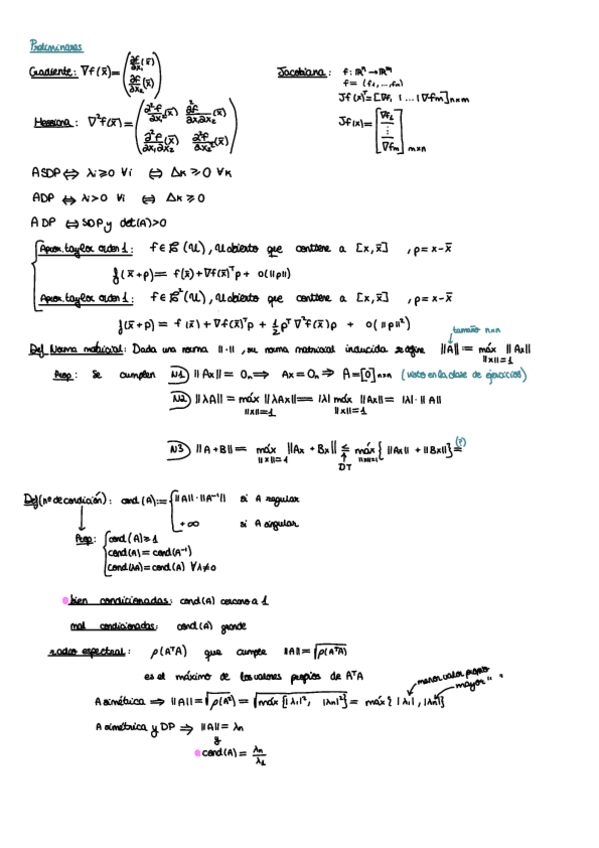 Preliminares
Gradiente: ∇f(x̄) = (∂f/∂x₁(x̄) ∂f/∂x₂(x̄))
Jacobiana: f: ℝⁿ → ℝᵐ
f = (f₁, ..., fₙ)
Jf(x)ᵀ = [∇f₁ | ... | ∇fm] n×m
Hessiana: ∇²f(x̄) = (∂²f/∂x₁²(x̄) ∂²f/∂x₁∂x₂(x̄) ∂²f/∂x₁∂x₂(x̄) ∂²f/∂x₂²(x̄))
Jf(x) = [∇f₁ ⋮ ∇fm] m×n
A SDP ⇔ λi ≥ 0 ∀i ⇔ Δκ ≥ 0 ∀κ
A DP ⇔ λi > 0 ∀i ⇔ Δκ ≥ 0
A DP ⇔ SDP y det(A) > 0
Aprox. taylor orden 1: f ∈ C¹(U), U abierto que contiene a [x, x̄], p = x - x̄
f(x̄ + p) = f(x̄) + ∇f(x̄)ᵀp + o(||p||)
Aprox. taylor orden 1: f ∈ C²(U), U abierto que contiene a [x, x̄], p = x - x̄
f(x̄ + p) = f(x̄) + ∇f(x̄)ᵀp + ½pᵀ∇²f(x̄)p + o(||p||²)
tamaño n×n
Def Norma matricial: Dada una norma ||·||, su norma matricial inducida se define ||A|| := máx ||x||=1 ||Ax||
Prop: Se cumplen N1) ||Ax|| = 0n ⇒ Ax = 0n ⇒ A = [0] n×n (visto en la clase de ejercicios)
N2) ||λA|| = máx ||x||=1 ||λAx|| = |λ| máx ||x||=1 ||Ax|| = |λ|·||A||
N3) ||A + B|| = máx ||x||=1 ||Ax + Bx|| ≤ máx ||x||=1 {||Ax|| + ||Bx||} = (?)
DT
Def (nº de condición): cond(A) := { ||A||·||A⁻¹|| si A regular
+∞ si A singular
Prop: { cond(A) ≥ 1
cond(A) = cond(A⁻¹)
cond(λA) = cond(A) ∀λ ≠ 0
bien condicionadas: cond(A) cercano a 1
mal condicionadas: cond(A) grande
radio espectral: ρ(AᵀA) que cumple ||A|| = √ρ(AᵀA)
es el máximo de los valores propios de AᵀA
menor valor propio
mayor " "
A simétrica ⇒ ||A|| = √ρ(A²) = √máx{|λ₁|², |λn|²} = máx{|λ₁|, |λn|}
A simétrica y DP ⇒ ||A|| = λn
y
cond(A) = λn/λ₁